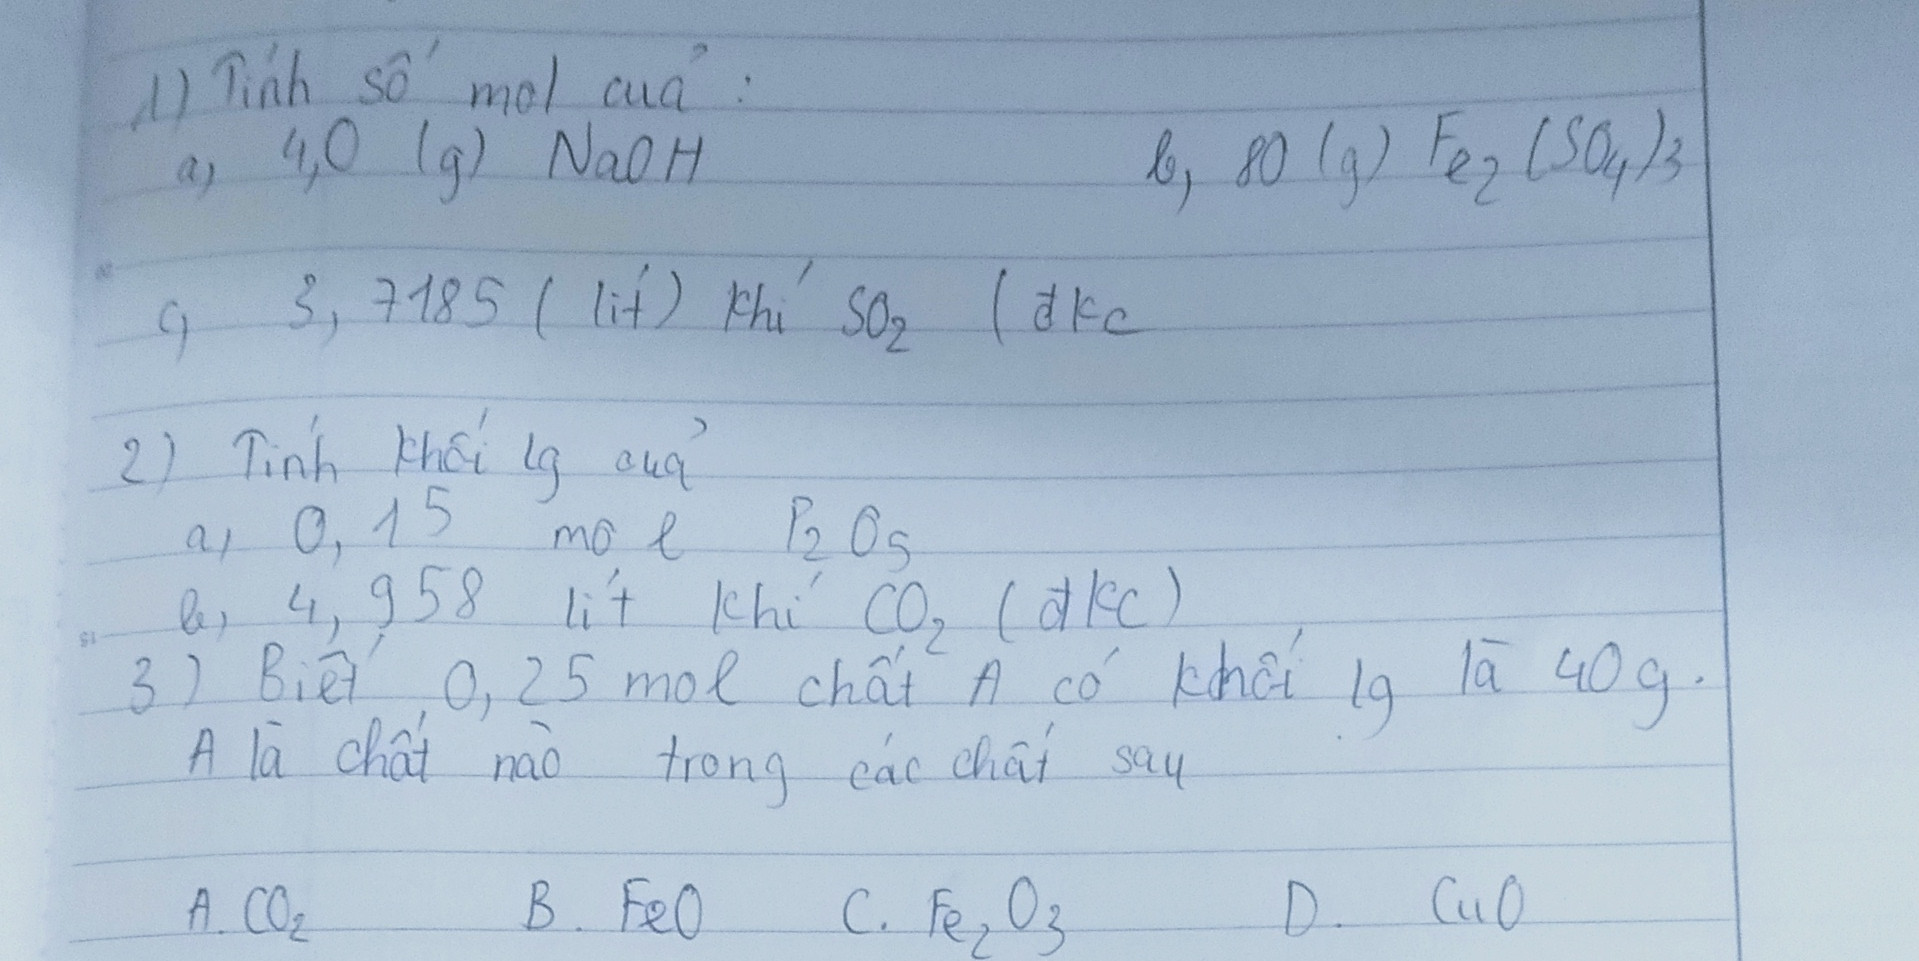 1) Tính số mol của :
a, 4,0 (g) NaOH b, 80 (g) Fe₂(SO₄)₃
c, 3,7185 ( lít ) khí SO₂ ( đkc
2) Tính khối lg của
a, 0,15 mol P₂O₅
b, 4,958 lít khí CO₂ ( đkc )
3) Biết 0,25 mol chất A có khối lg là 40g.
A là chất nào trong các chất sau
A. CO₂ B. FeO C. Fe₂O₃ D. CuO